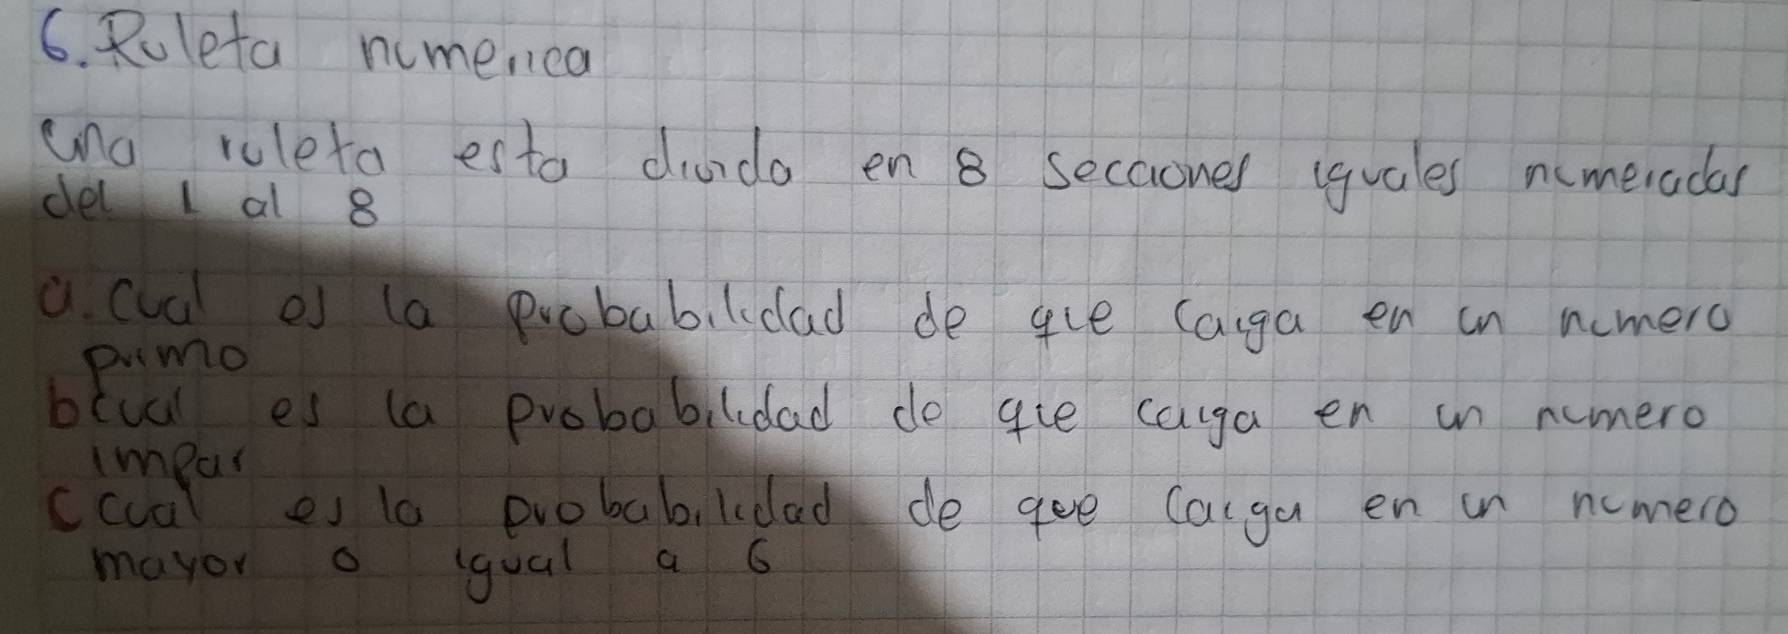 6. Ruleta numerica
una ruleta esta divida en 8 secciones iguales numeradas
del 1 al 8
a. Cual es la probabilidad de que caiga en un numero
primo
b cual es la probabilidad de que caiga en un numero
impar
c cual es la probabilidad de que caiga en un numero
mayor o igual a 6